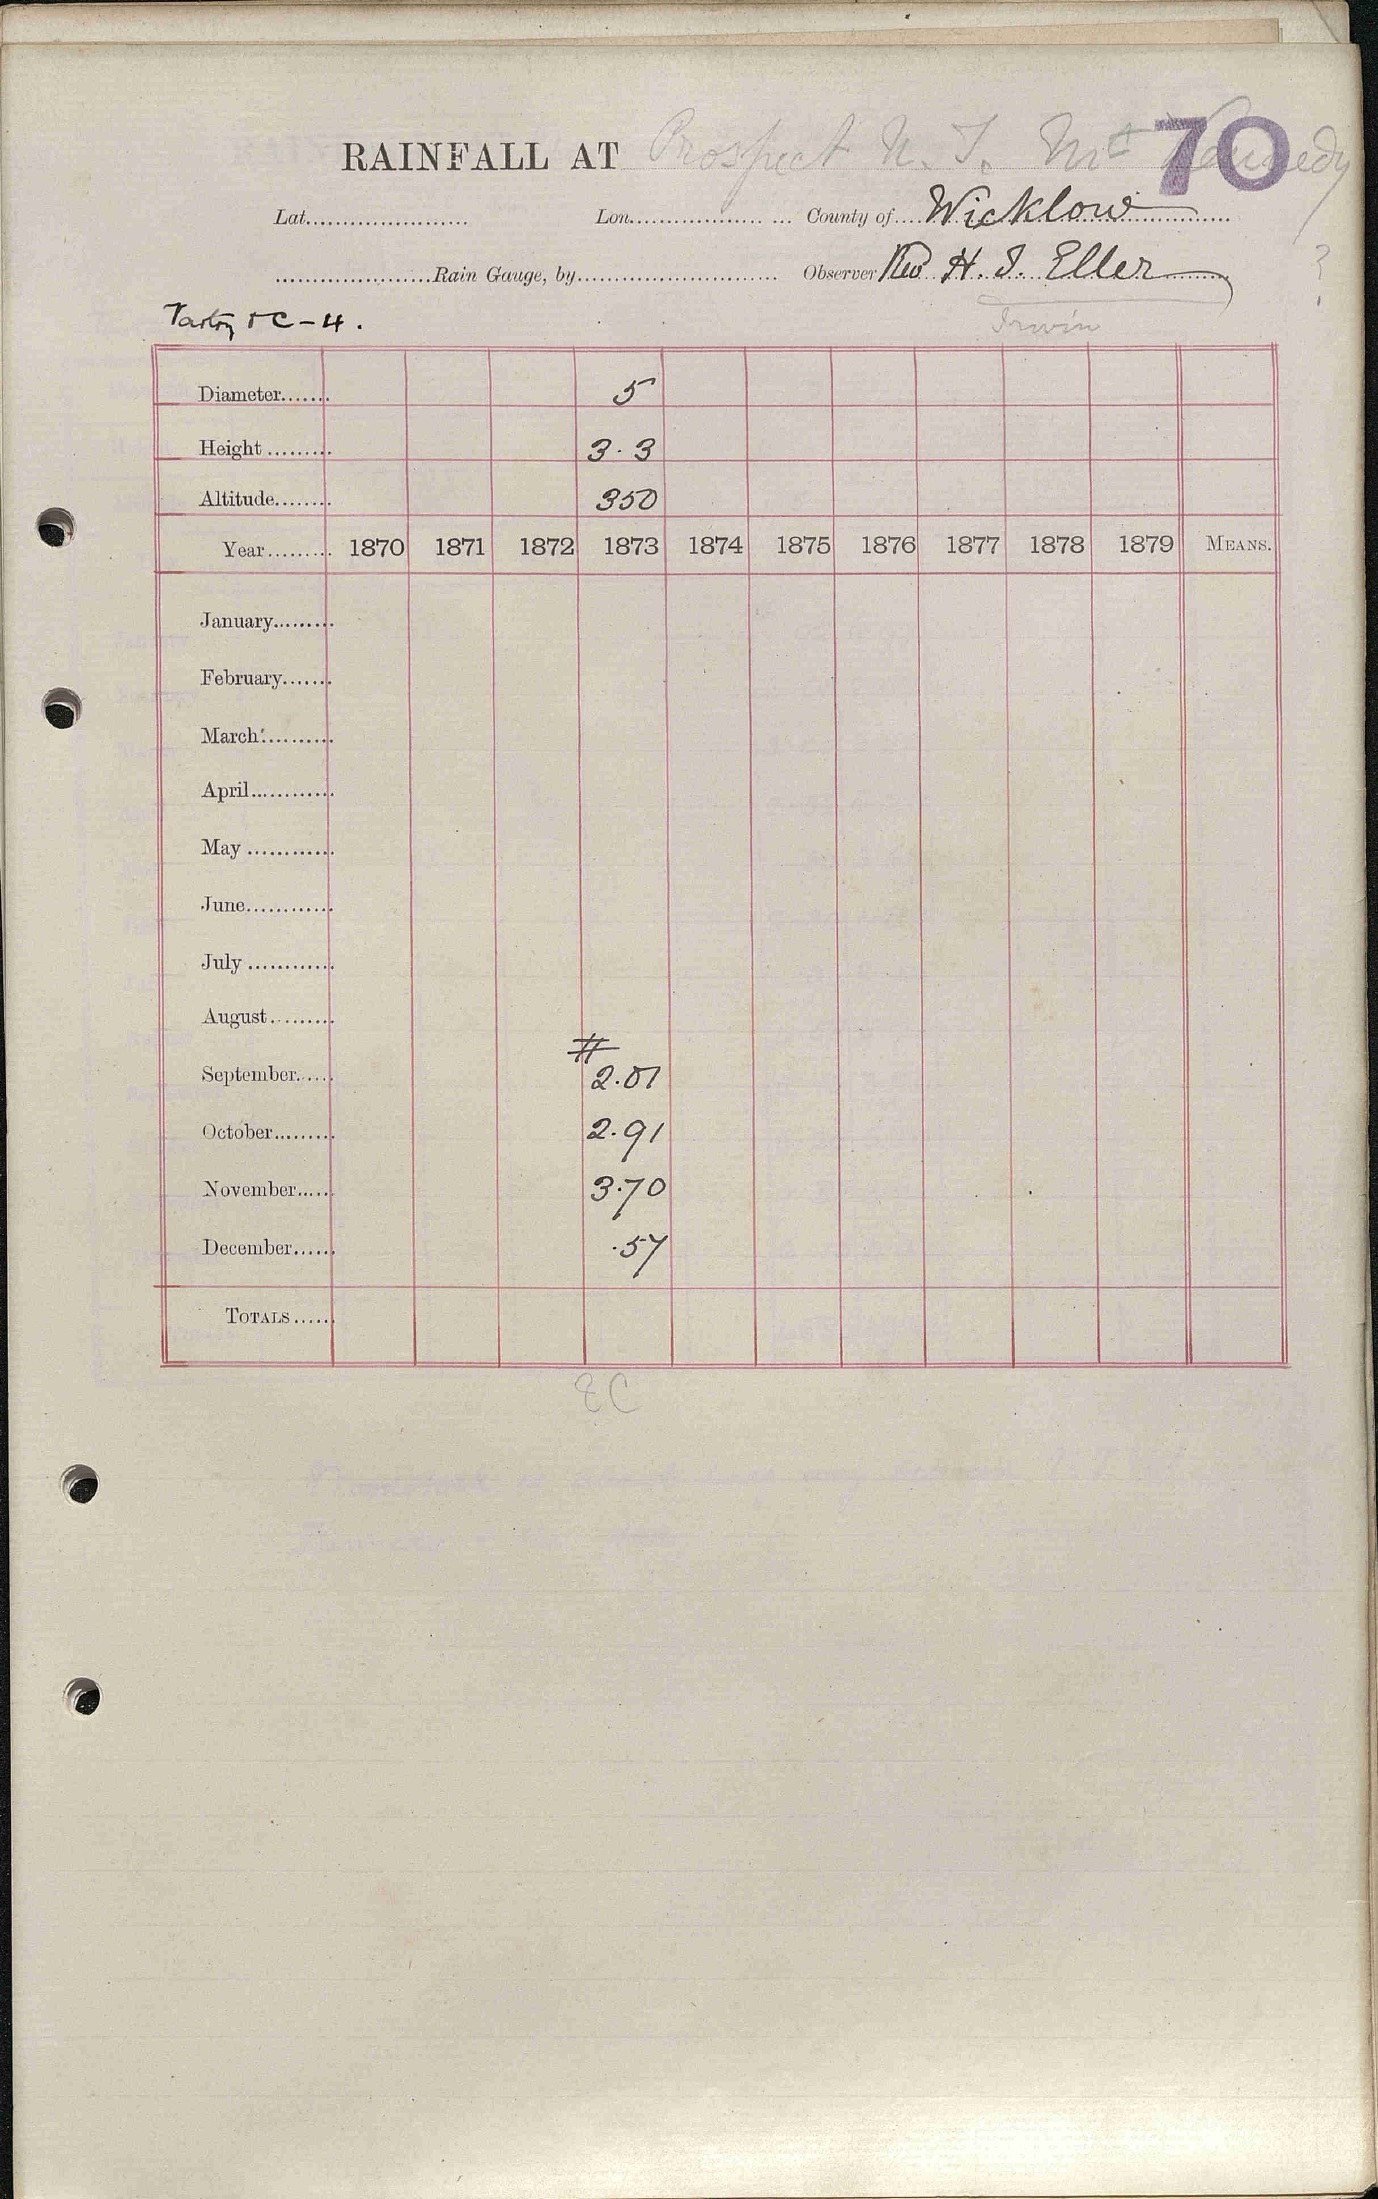 70
RAINFALL AT Prospect N. T. Mt Kennedy
Lat. Lon. County of Wicklow
Rain Gauge, by Observer Rev H. I. Eller ?
Irwin
Vartry + C-4.
Diameter 5
Height 3.3
Altitude 350
Year 1870 1871 1872 1873 1874 1875 1876 1877 1878 1879 MEANS.
January
February
March
April
May
June
July
August
#
September 2.01
October 2.91
November 3.70
December .57
TOTALS